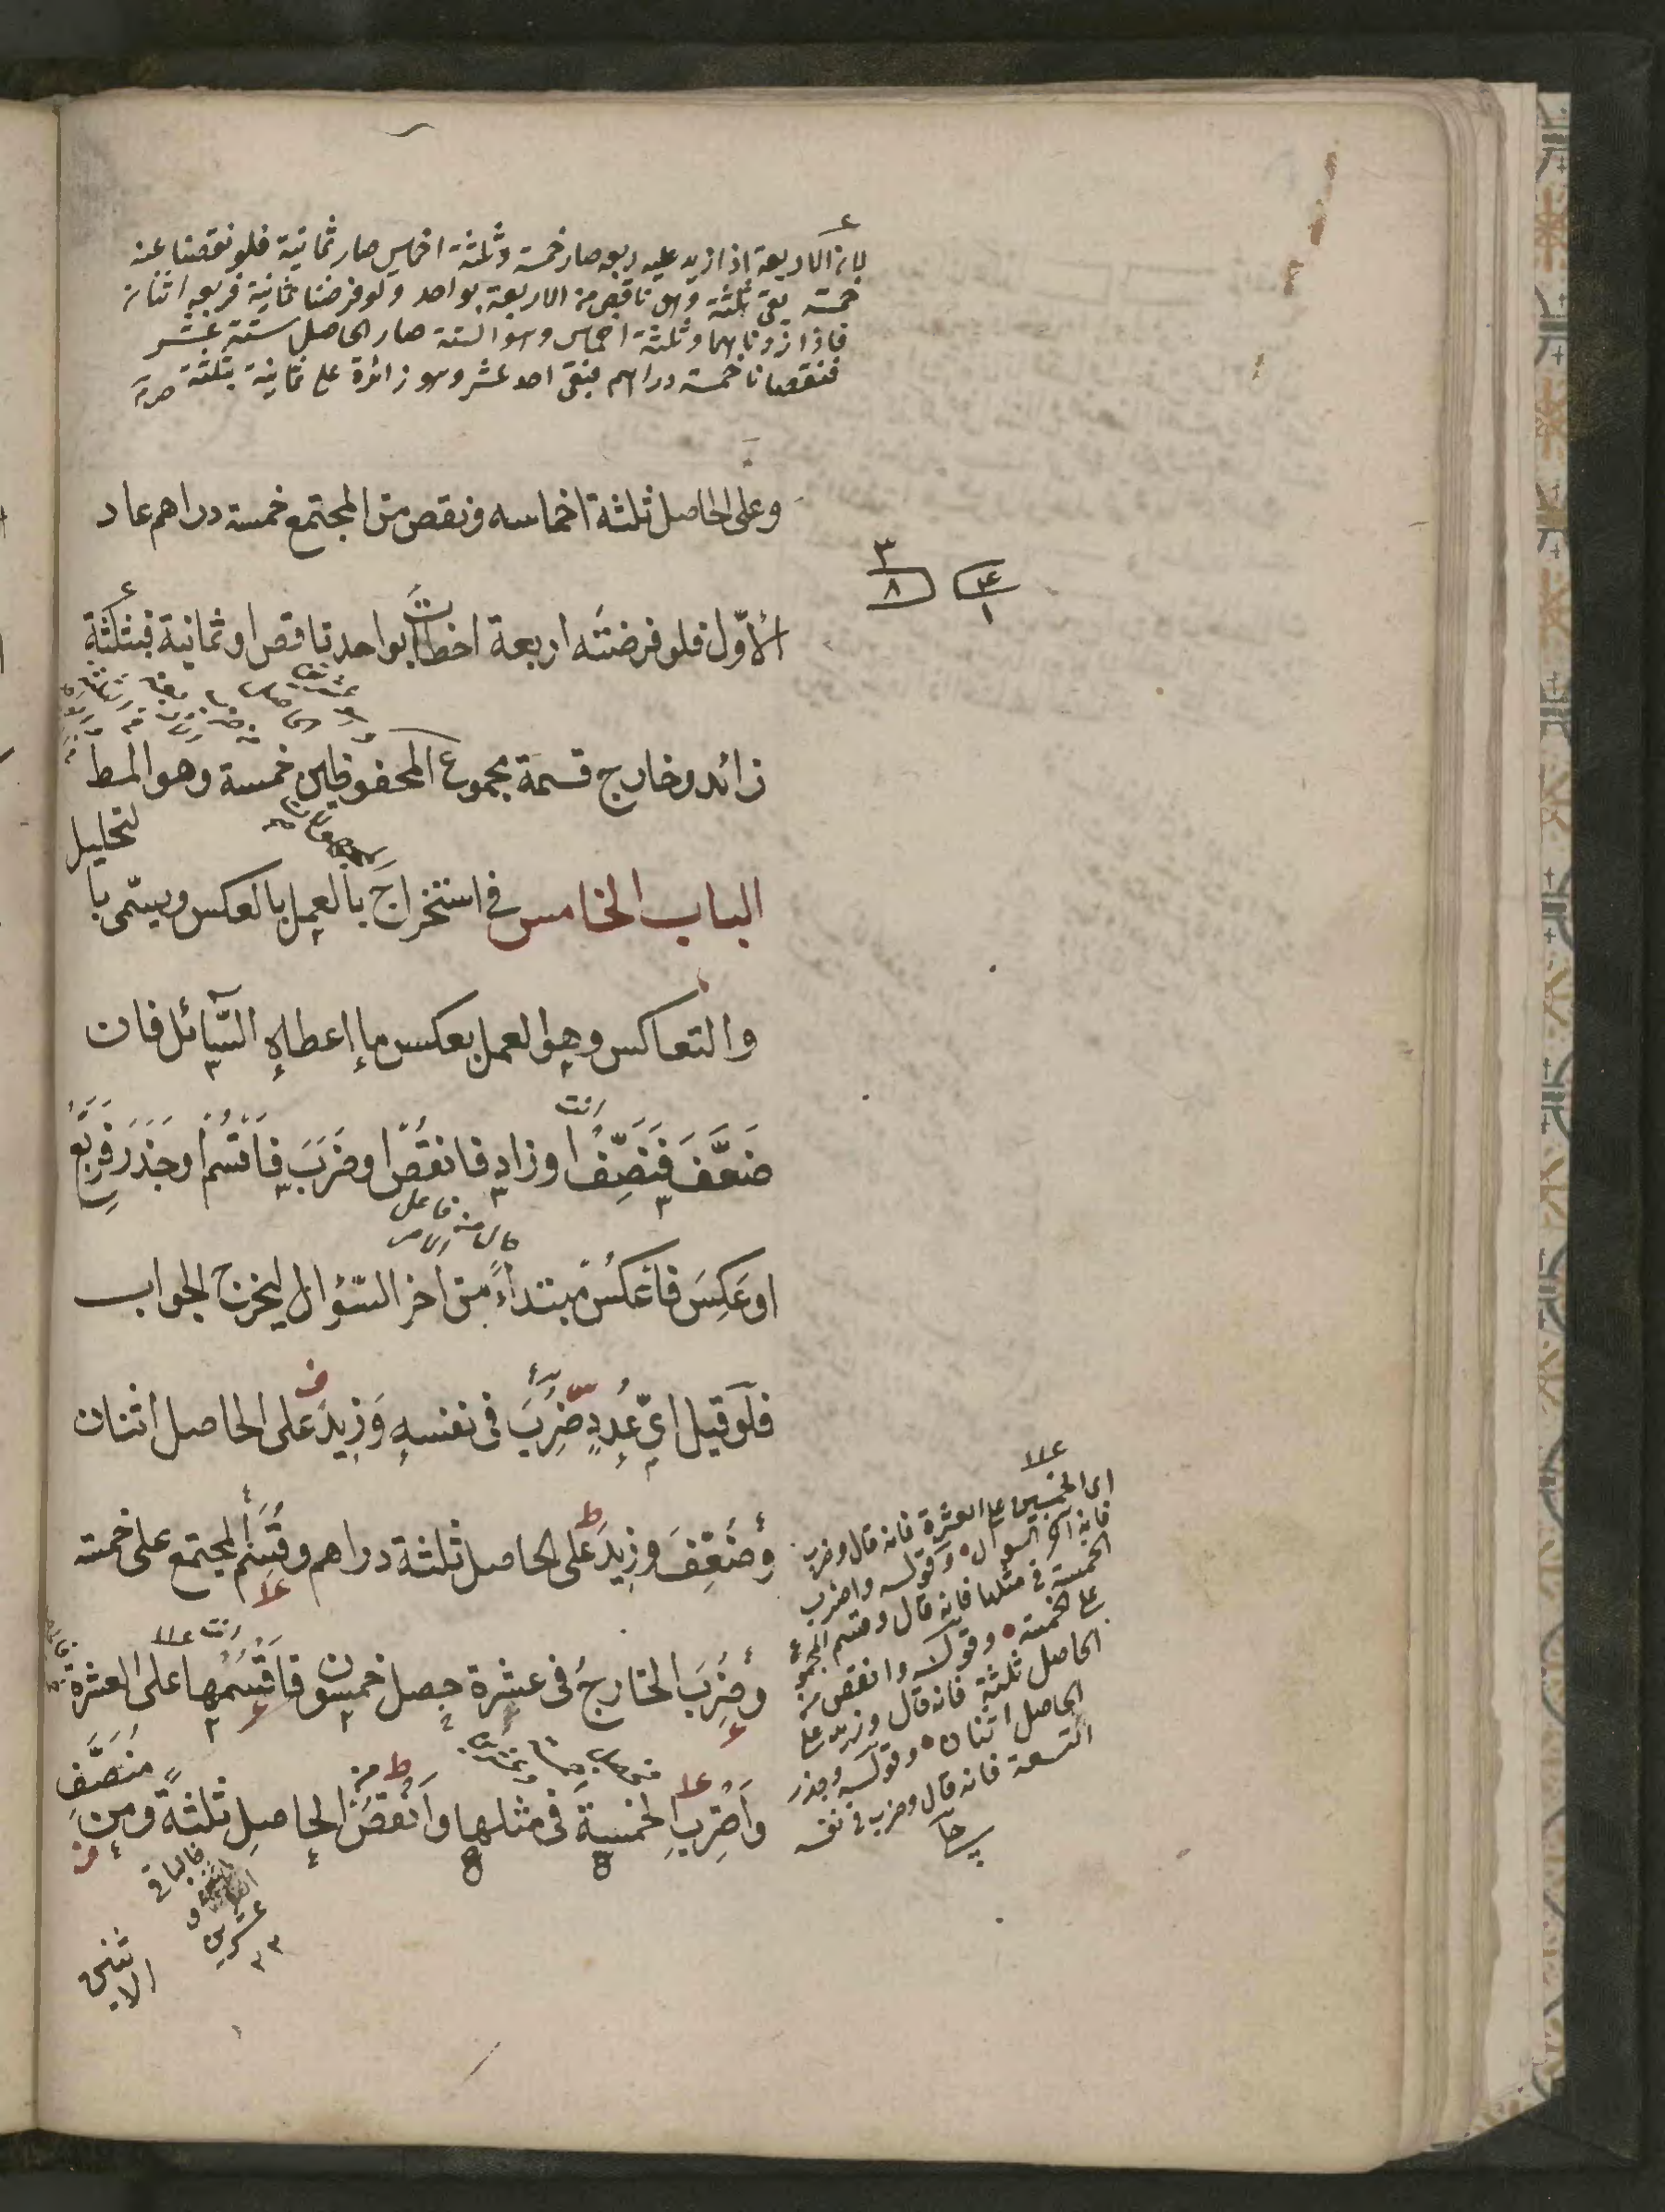 لان الاربعة اذا زيد عليه ربعه صار خمسة وثلثة اخماس صار ثمانية فلو نقصنا عنه
خمسة يبقى ثلثة وهو ناقص من الاربعة بواحد ولو فرضنا ثمانية فربعه اثنان
فاذا زدنا بهما وثلثة اخماس وهو الستة صار الحاصل ستة عشر
فنقصنا خمسة دراهم فبقى احد عشر وهو زائدة على ثمانية بثلثة
وعلى الحاصل ثلثة اخماسه ونقص من المجتمع خمسة دراهم عاد
٣
٨
٤
١
الأوّل فلو فرضته اربعة اخطات بواحد ناقص او ثمانية فبثلثة
زائد وخارج قسمة مجموع المحفوظين خمسة وهو المط
لتحليل
الباب الخامس في استخراج بالعمل بالعكس ويسمّى با
والتعاكس وهو العمل بعكس ما اعطاه السّائل فان
انت
ضَعَّفَ فَنَصِّفْ او زاد فانقُصْ او ضَرَبَ فَاقْسُمْ او جَذَرَ فَرَبِّعْ
حال من فاعل الامر
او عَكِسَ فاعْكُسْ مبتداءً من اخر السّؤال ليخرج الجواب
فلو قيل ايّ عددٍ ضُرِبَ في نفسهِ وَزِيدَ على الحاصل اثنان
وضُعِّفَ وزِيدَ على الحاصل ثلثة دراهم وقُسِمَ المجتمع على خمسة
وضُرِبَ الخارجُ في عشرة حصل خمسون فاقْسُمها على العشرة
واضْرِبِ الخمسةَ في مثلها وَانْقُصْ من الحاصِلِ ثلثةً ومن مُنَصَّفِ
فالباقي
عشرين
الاثنين
اى الخمسين على العشرة فانه قال وضرب
فانه آخر السؤال وقوله واضرب
الخمسة في مثلها فانه قال وقسم المجموع
على خمسة وقوله وانقص من
الحاصل ثلثة فانه قال وزيد على
الحاصل اثنان وقوله وجذر
التسعة فانه قال وضرب في نفسه